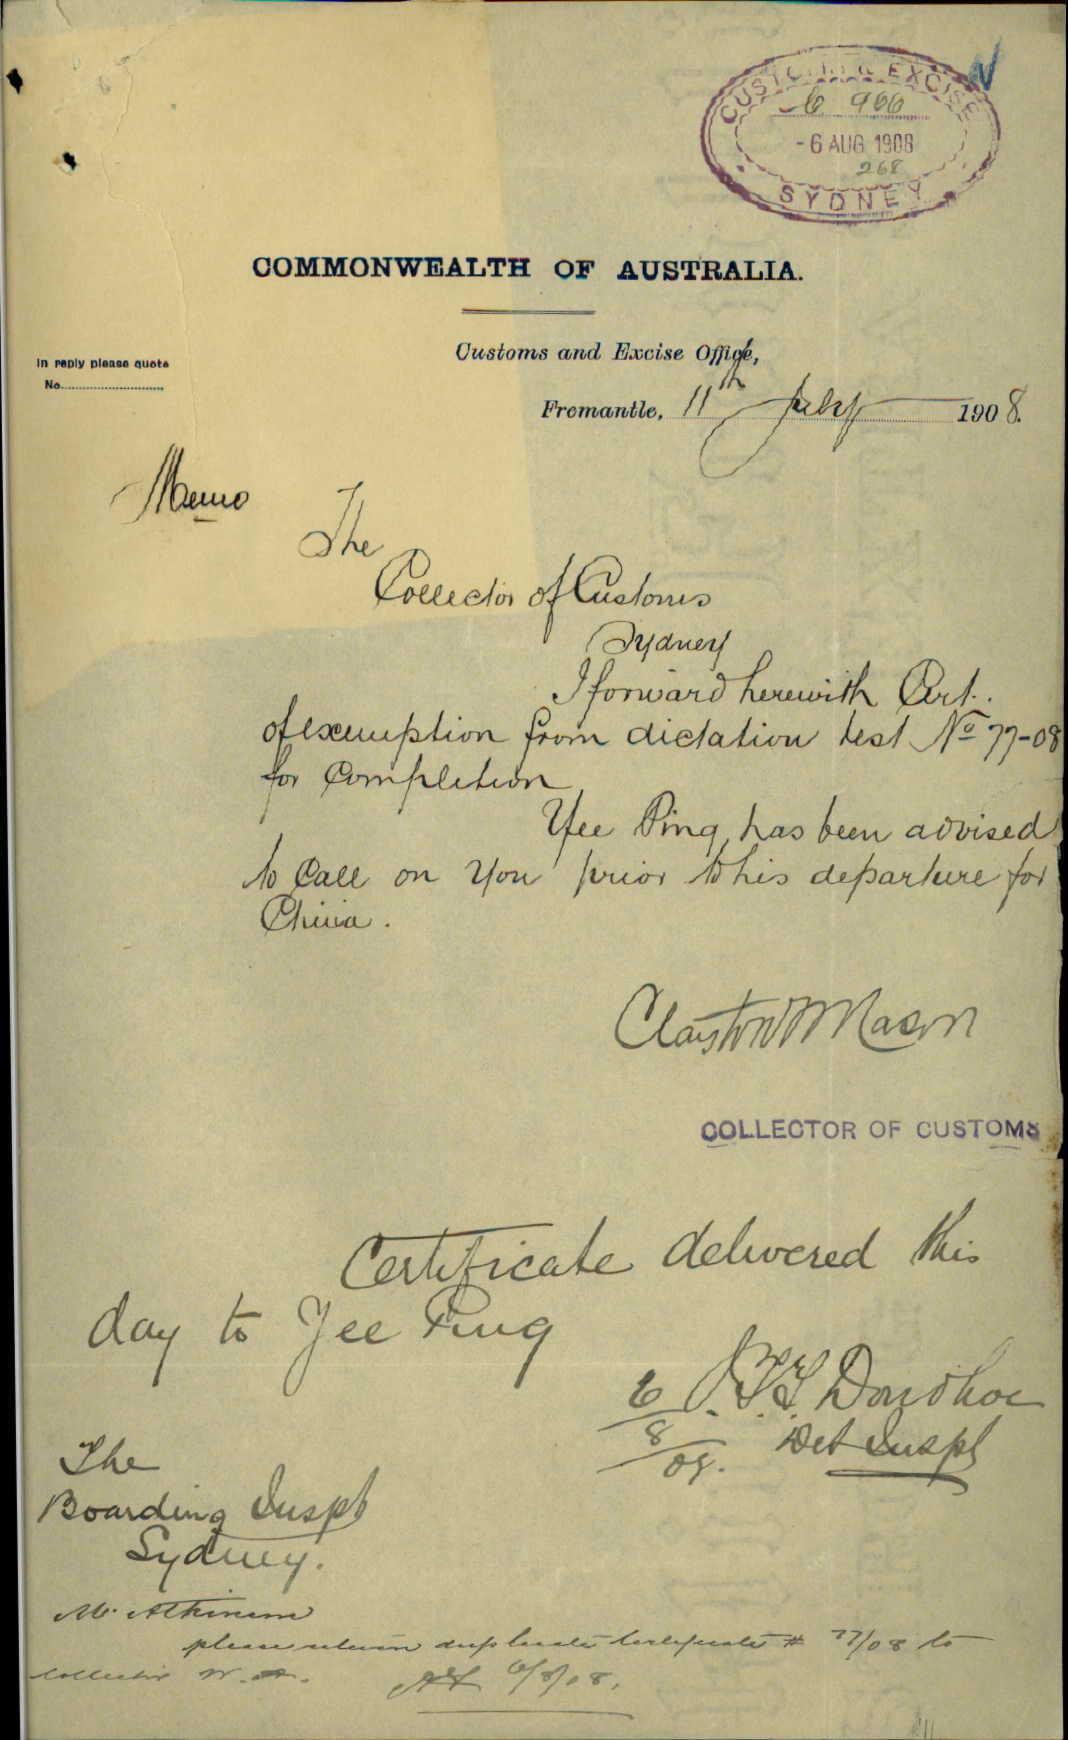 CUSTOMS & EXCISE
6 966
-6 AUG 1908
268
SYDNEY
COMMONWEALTH OF AUSTRALIA.
In reply please quote
No.
Customs and Excise Office,
Fremantle, 11th July 1908.
Memo
The
Collector of Customs
Sydney
I forward herewith Cert.
of exemption from dictation test No 77-08
for Completion
Yee Ping has been advised
to Call on You prior to his departure for
China.
Clayton Mason
COLLECTOR OF CUSTOMS
Certificate delivered this
day to Yee Ping
6/8/08. J.T.T. Donohoe
Det Inspt
The
Boarding Inspt
Sydney.
Mr. Atkinson
please return duplicate Certificate # 77/08 to
Collector W.A. 6/8/08.